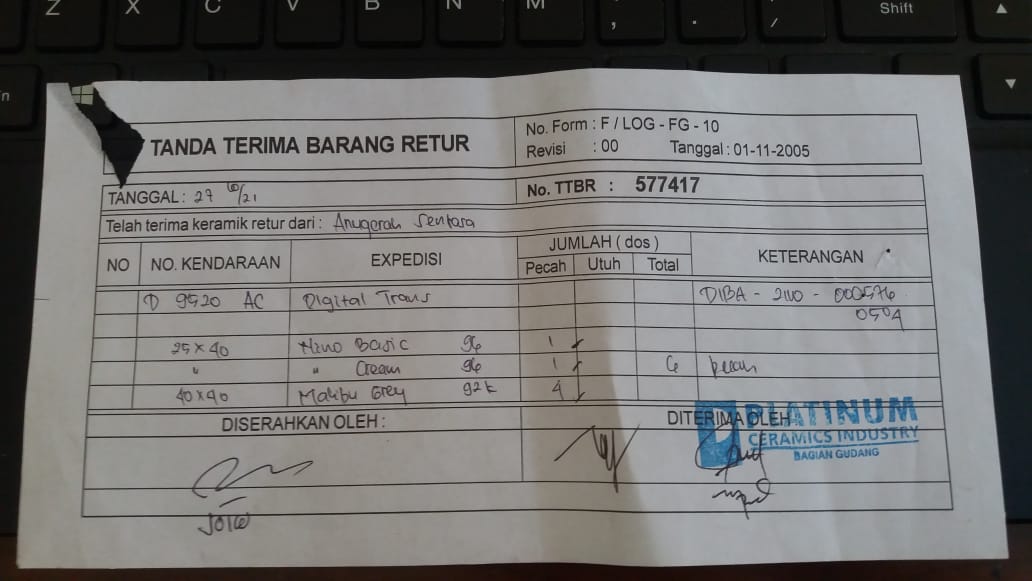 Z X C V B N M , . / Shift
TANDA TERIMA BARANG RETUR
No. Form : F / LOG - FG - 10
Revisi : 00 Tanggal : 01-11-2005
TANGGAL : 27 10/21
No. TTBR : 577417
Telah terima keramik retur dari : Anugerah Sentara
NO NO. KENDARAAN EXPEDISI JUMLAH ( dos ) KETERANGAN
Pecah Utuh Total
D 9520 AC Digital Trans DIBA - 2110 - 000576
0504
25 x 40 Nano Basic 96 1
" " Cream 96 1 6 pecah
40 x 40 Malibu Grey 92k 4
DISERAHKAN OLEH : DITERIMA OLEH
PLATINUM
CERAMICS INDUSTRY
BAGIAN GUDANG